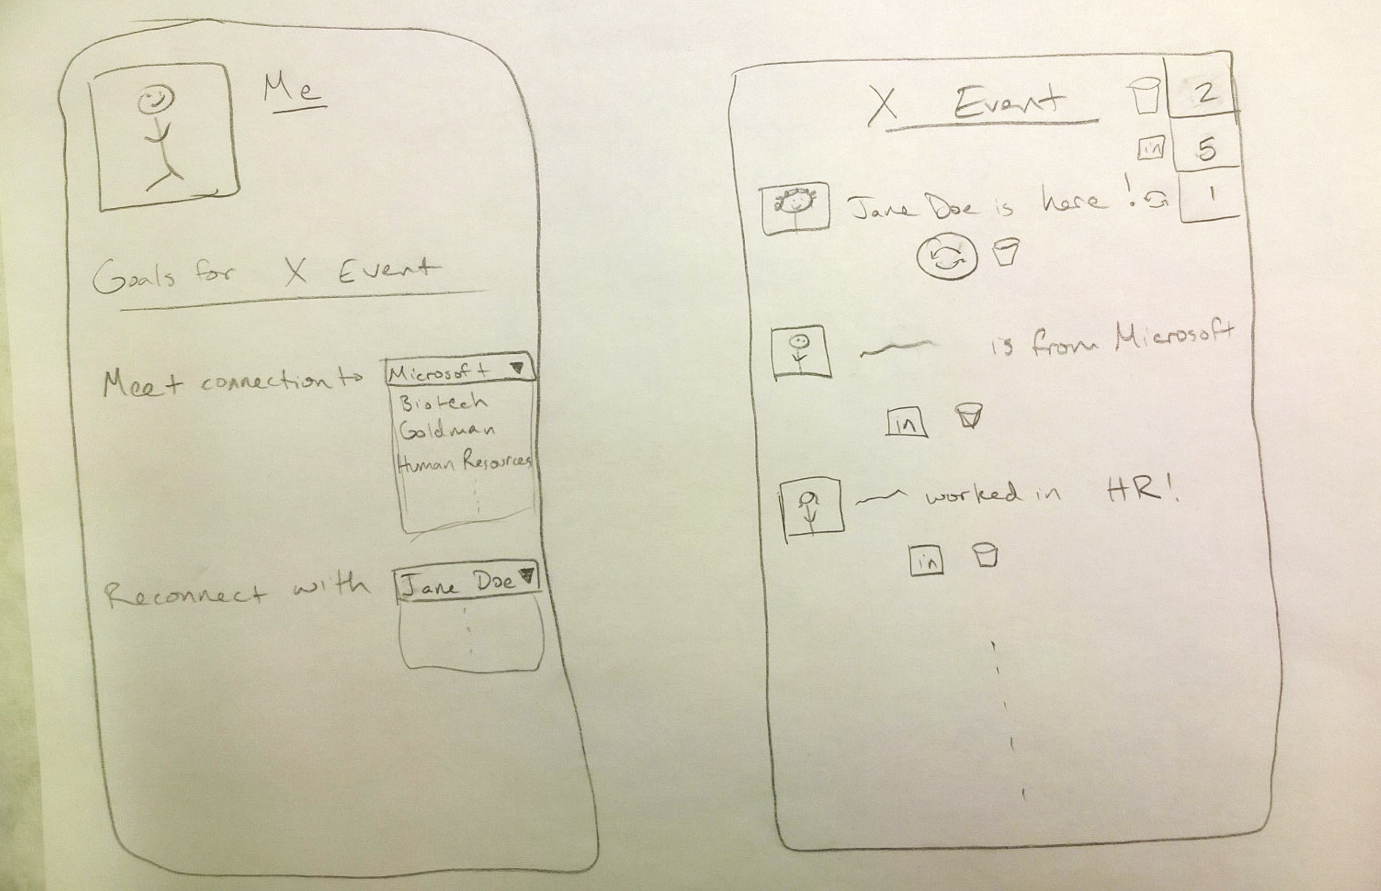 Me
Goals for X Event
Meet connection to Microsoft
Biotech
Goldman
Human Resources
Reconnect with Jane Doe
X Event 2
in 5
Jane Doe is here! 1
is from Microsoft
in
worked in HR!
in